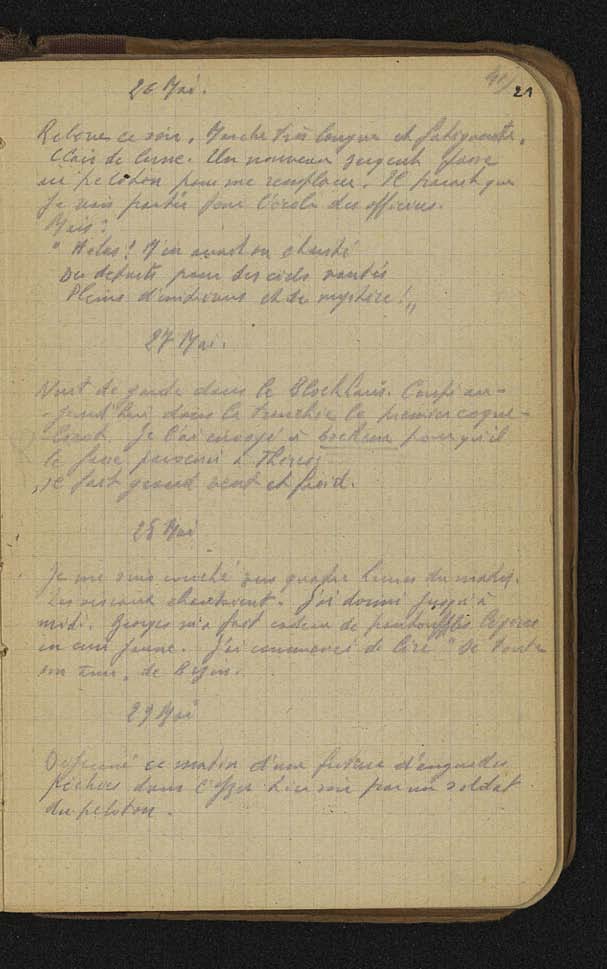 41/
21
26 Mai.
Releve ce soir. Marche très longue et fatiguante.
Clair de lune. Un nouveau sergent passe
au peloton pour me remplacer. Il parait que
je vais partir pour l'école des officiers.
Mais?
" Helas! M'en avait on chanté
Des departs pour des ciels vantés
Pleins et de mystère! "
27 Mai.
Nuit de garde dans le Blockhaus. Coupé au-
jourd'hui dans la tranchée le premier coque-
licot. Je l'ai envoyé à pour qu'il
le fasse parvenir à
il fait grand vent et froid.
28 Mai
Je me suis couché vers quatre heures du matin.
Les oiseaux chantaient. J'ai dormi jusqu'à
midi. Georges m'a fait cadeau de pantouffles légères
en cuir jaune. J'ai commencé de lire " De toute
son âme, de Bazin.
29 Mai
Dejeuné ce matin d'une friture d'anguilles
pêchées dans l'Yser hier soir par un soldat
du peloton.